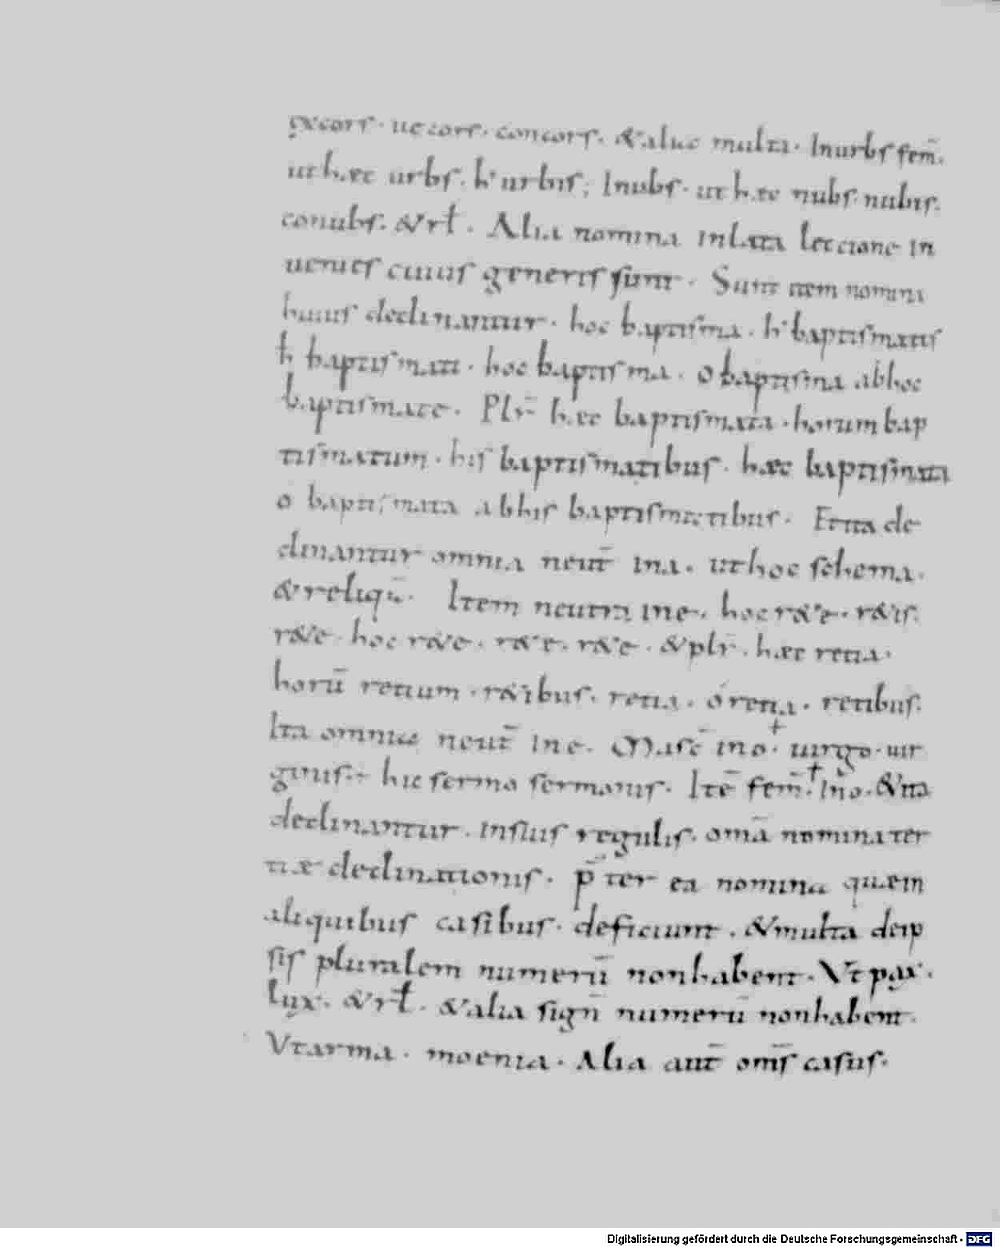 uecors. concors. & aliae multa. In urbs fem̄.
ut haec urbs. h' urbis; In ubs. ut haec nubs. nubis.
conubs. & rł. Alia nomina in lata leccione in
uenies cuius generis sunt. Sunt item nomina
huius declinantur. hoc baptisma. h' baptismatis
ħ baptismati. hoc baptisma. o baptisma ab hoc
baptismate. Plr̄ haec baptismata. horum bap
tismatum. his baptismatibus. haec baptismata
o baptismata ab his baptismatibus. Et ita de
clinantur omnia neut̄ in a. ut hoc schema.
& reliqū. Item neutra in e. hoc r&e. r&is.
r&e. hoc r&e. r&e. r&e. & plr̄. haec retia.
horū retium. r&ibus. retia. o retia. retibus.
Ita omnia neut̄ in e. Masc̄ in o. uirgo. uir
ginis. hic sermo sermonis. Itē fem̄. in o. & ita
declinantur. in suis regulis. om̄a nomina ter
tiae declinationis. p̄ter ea nomina quae in
aliquibus casibus. deficiunt. & multa de ip
sis pluralem numerū non habent. Vt pax.
lux. & rł. & alia sign̄ numerū non habent.
Vt arma. moenia. Alia aut̄ om̄s casus.
Digitalisierung gefördert durch die Deutsche Forschungsgemeinschaft - DFG